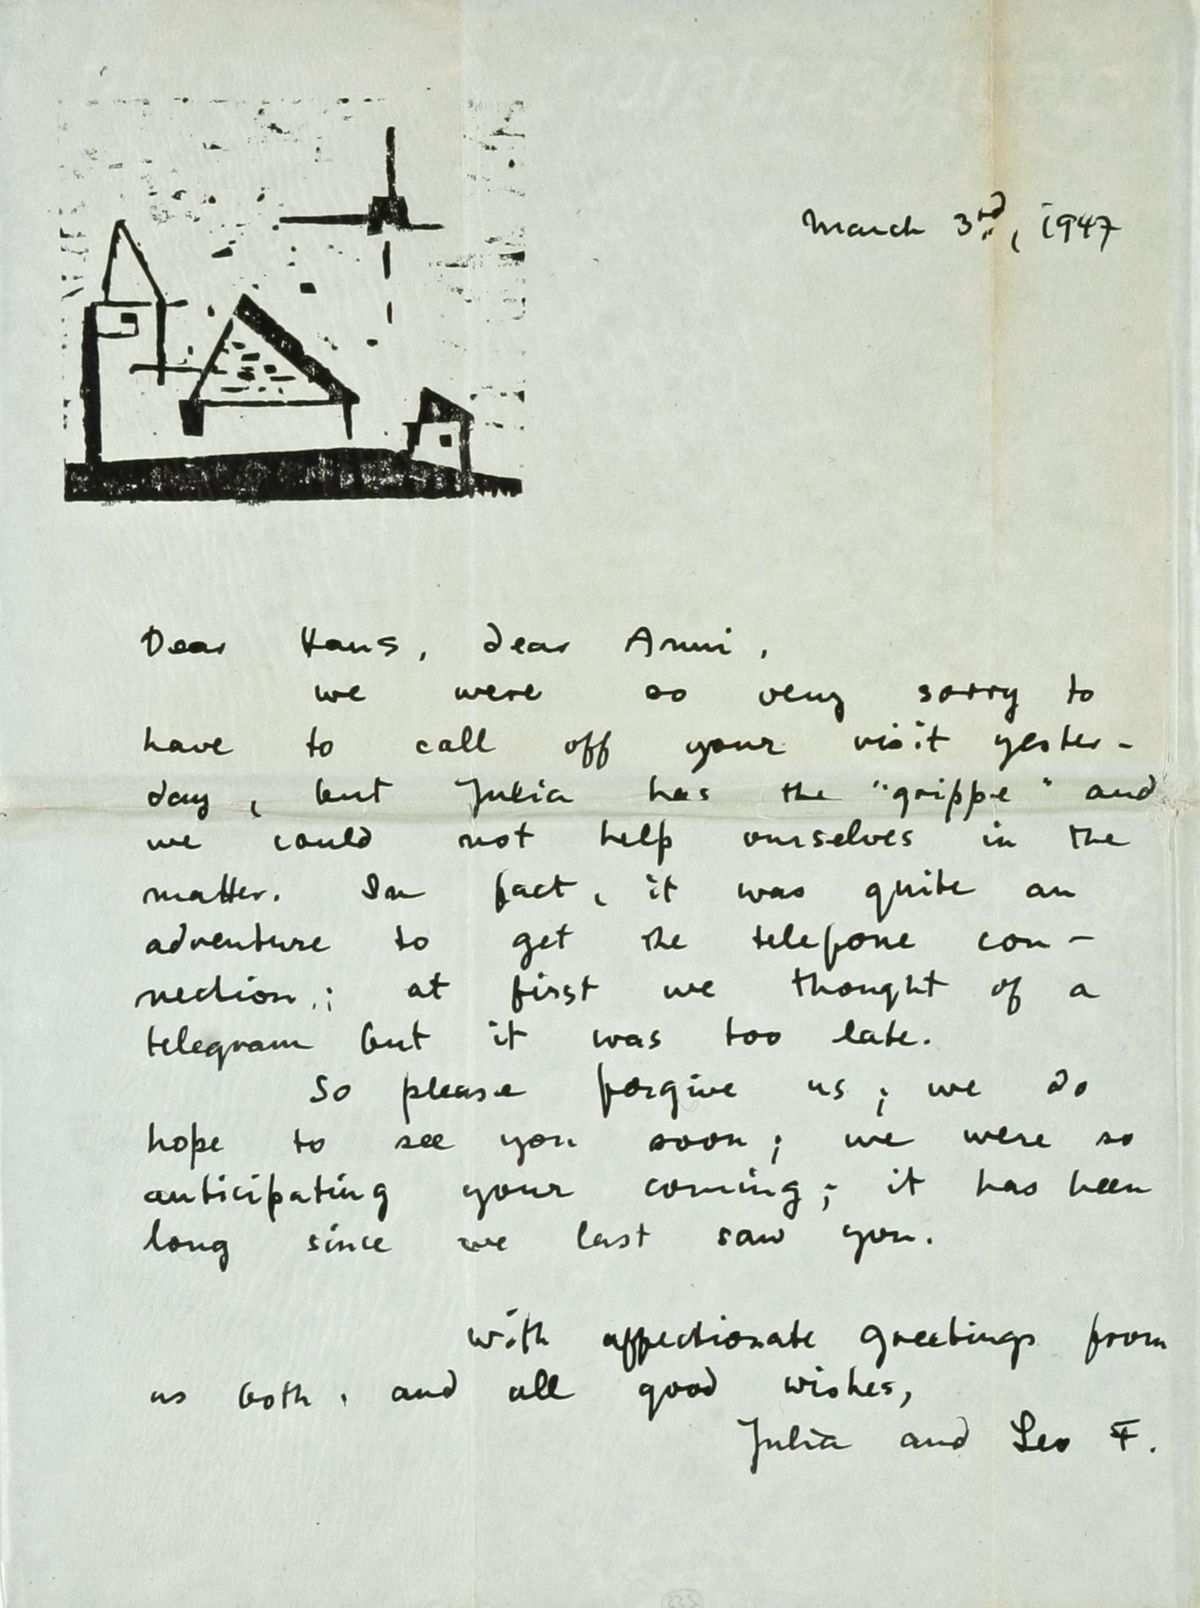 March 3rd, 1947
Dear Hans, dear Anni,
we were so very sorry to
have to call off your visit yester-
day, but Julia has the "grippe" and
we could not help ourselves in the
matter. In fact, it was quite an
adventure to get the telefone con-
nection; at first we thought of a
telegram but it was too late.
So please forgive us; we do
hope to see you soon; we were so
anticipating your coming; it has been
long since we last saw you.
with affectionate greetings from
us both, and all good wishes,
Julia and Leo F.